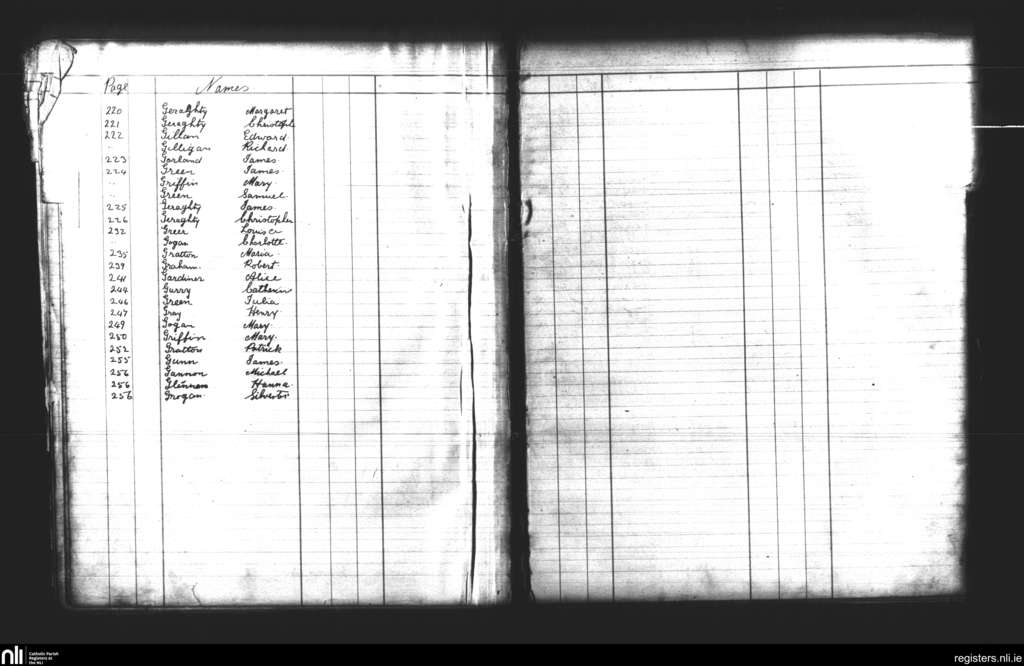 Page Names
220 Geraghty Margaret
221 Geraghty Christophe
222 Gillan Edward
" Gilligan Richard
223 Garland James
224 Green James
" Griffin Mary
" Green Samuel
225 Geraghty James
226 Geraghty Christopher
232 Greer Louisa
" Gogan Charlotte
235 Gratton Maria
239 Graham Robert
241 Gardiner Alice
244 Gurry Catherin
246 Green Julia
247 Gray Henry
249 Gogan Mary
250 Griffin Mary
252 Gratton Patrick
255 Gunn James
256 Gannon Michael
256 Glennon Hanna
256 Grogan Silvester
nli Catholic Parish
Registers at
the NLI
registers.nli.ie